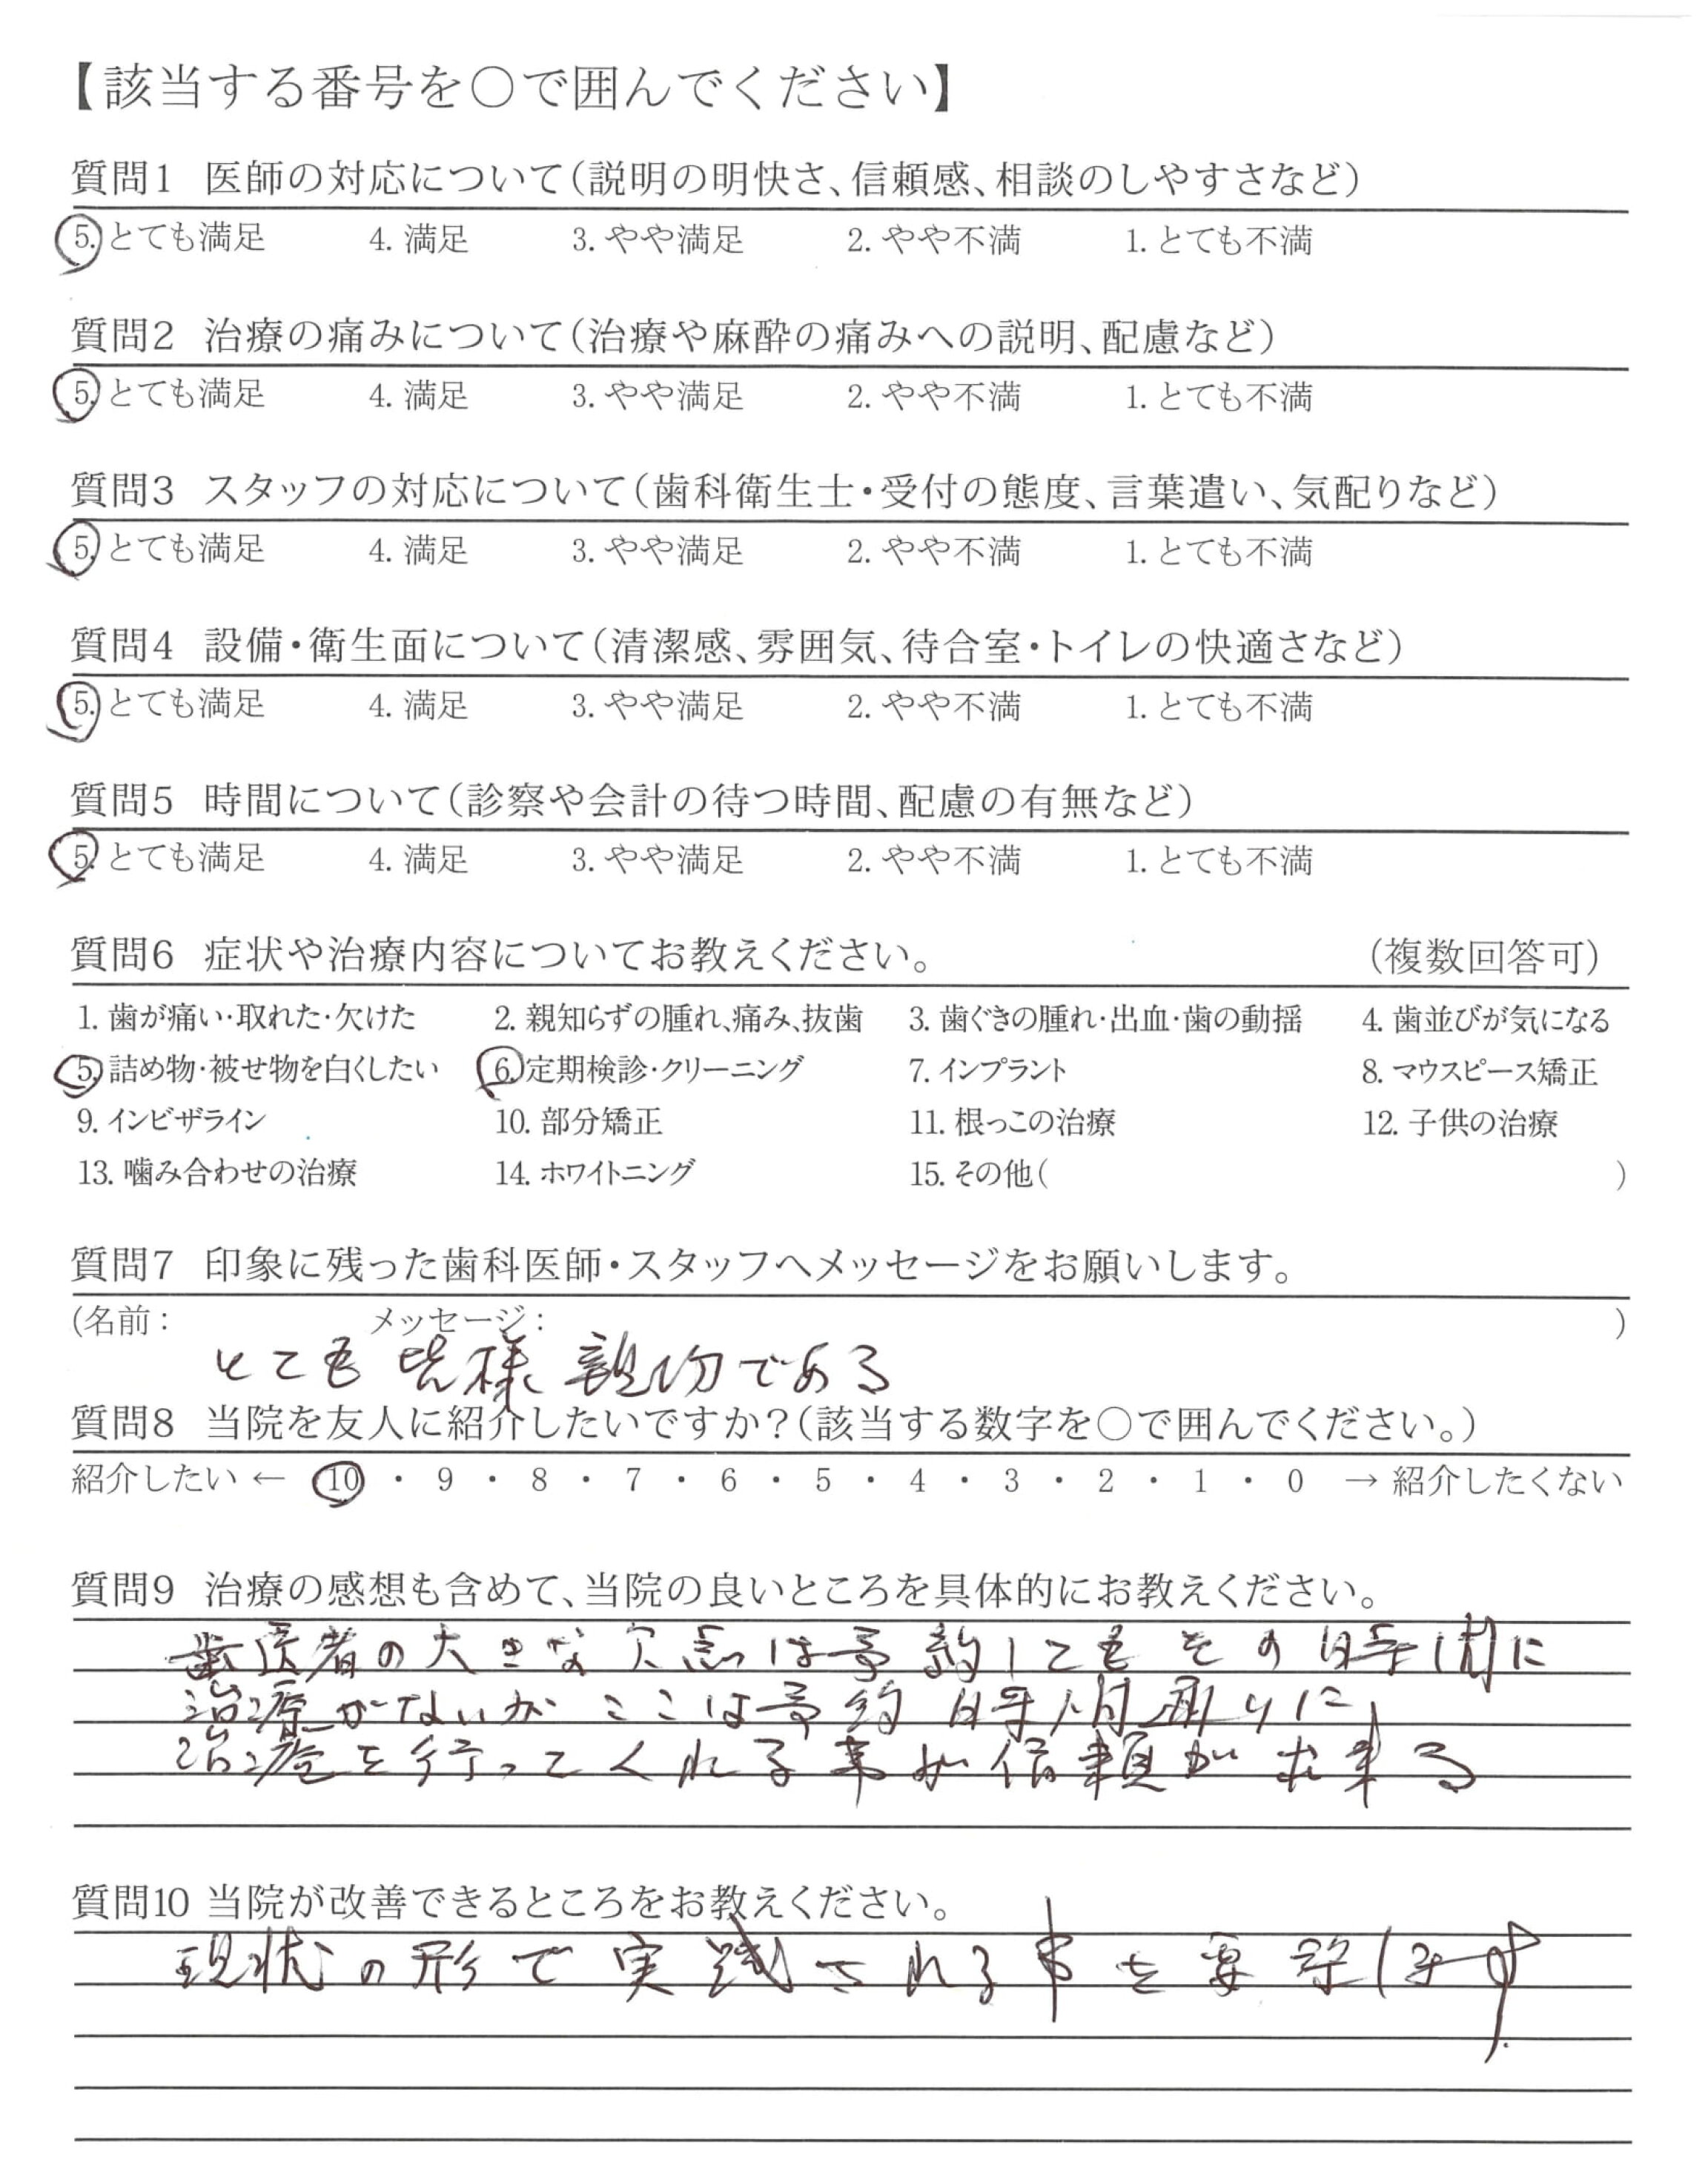 【該当する番号を○で囲んでください】
質問1 医師の対応について(説明の明快さ、信頼感、相談のしやすさなど)
5. とても満足 4. 満足 3. やや満足 2. やや不満 1. とても不満
質問2 治療の痛みについて(治療や麻酔の痛みへの説明、配慮など)
5. とても満足 4. 満足 3. やや満足 2. やや不満 1. とても不満
質問3 スタッフの対応について(歯科衛生士・受付の態度、言葉遣い、気配りなど)
5. とても満足 4. 満足 3. やや満足 2. やや不満 1. とても不満
質問4 設備・衛生面について(清潔感、雰囲気、待合室・トイレの快適さなど)
5. とても満足 4. 満足 3. やや満足 2. やや不満 1. とても不満
質問5 時間について(診察や会計の待つ時間、配慮の有無など)
5. とても満足 4. 満足 3. やや満足 2. やや不満 1. とても不満
質問6 症状や治療内容についてお教えください。 (複数回答可)
1. 歯が痛い・取れた・欠けた 2. 親知らずの腫れ、痛み、抜歯 3. 歯ぐきの腫れ・出血・歯の動揺 4. 歯並びが気になる
5. 詰め物・被せ物を白くしたい 6. 定期検診・クリーニング 7. インプラント 8. マウスピース矯正
9. インビザライン 10. 部分矯正 11. 根っこの治療 12. 子供の治療
13. 噛み合わせの治療 14. ホワイトニング 15. その他( )
質問7 印象に残った歯科医師・スタッフへメッセージをお願いします。
(名前: メッセージ: )
とても 皆様 親切である
質問8 当院を友人に紹介したいですか?(該当する数字を○で囲んでください。)
紹介したい ← 10 ・ 9 ・ 8 ・ 7 ・ 6 ・ 5 ・ 4 ・ 3 ・ 2 ・ 1 ・ 0 → 紹介したくない
質問9 治療の感想も含めて、当院の良いところを具体的にお教えください。
歯医者の大きな欠点は予約してもその時間に
治療がないが ここは予約時間通りに
治療を行ってくれる事が信頼が出来る
質問10 当院が改善できるところをお教えください。
現状の形で実践される事を要望します